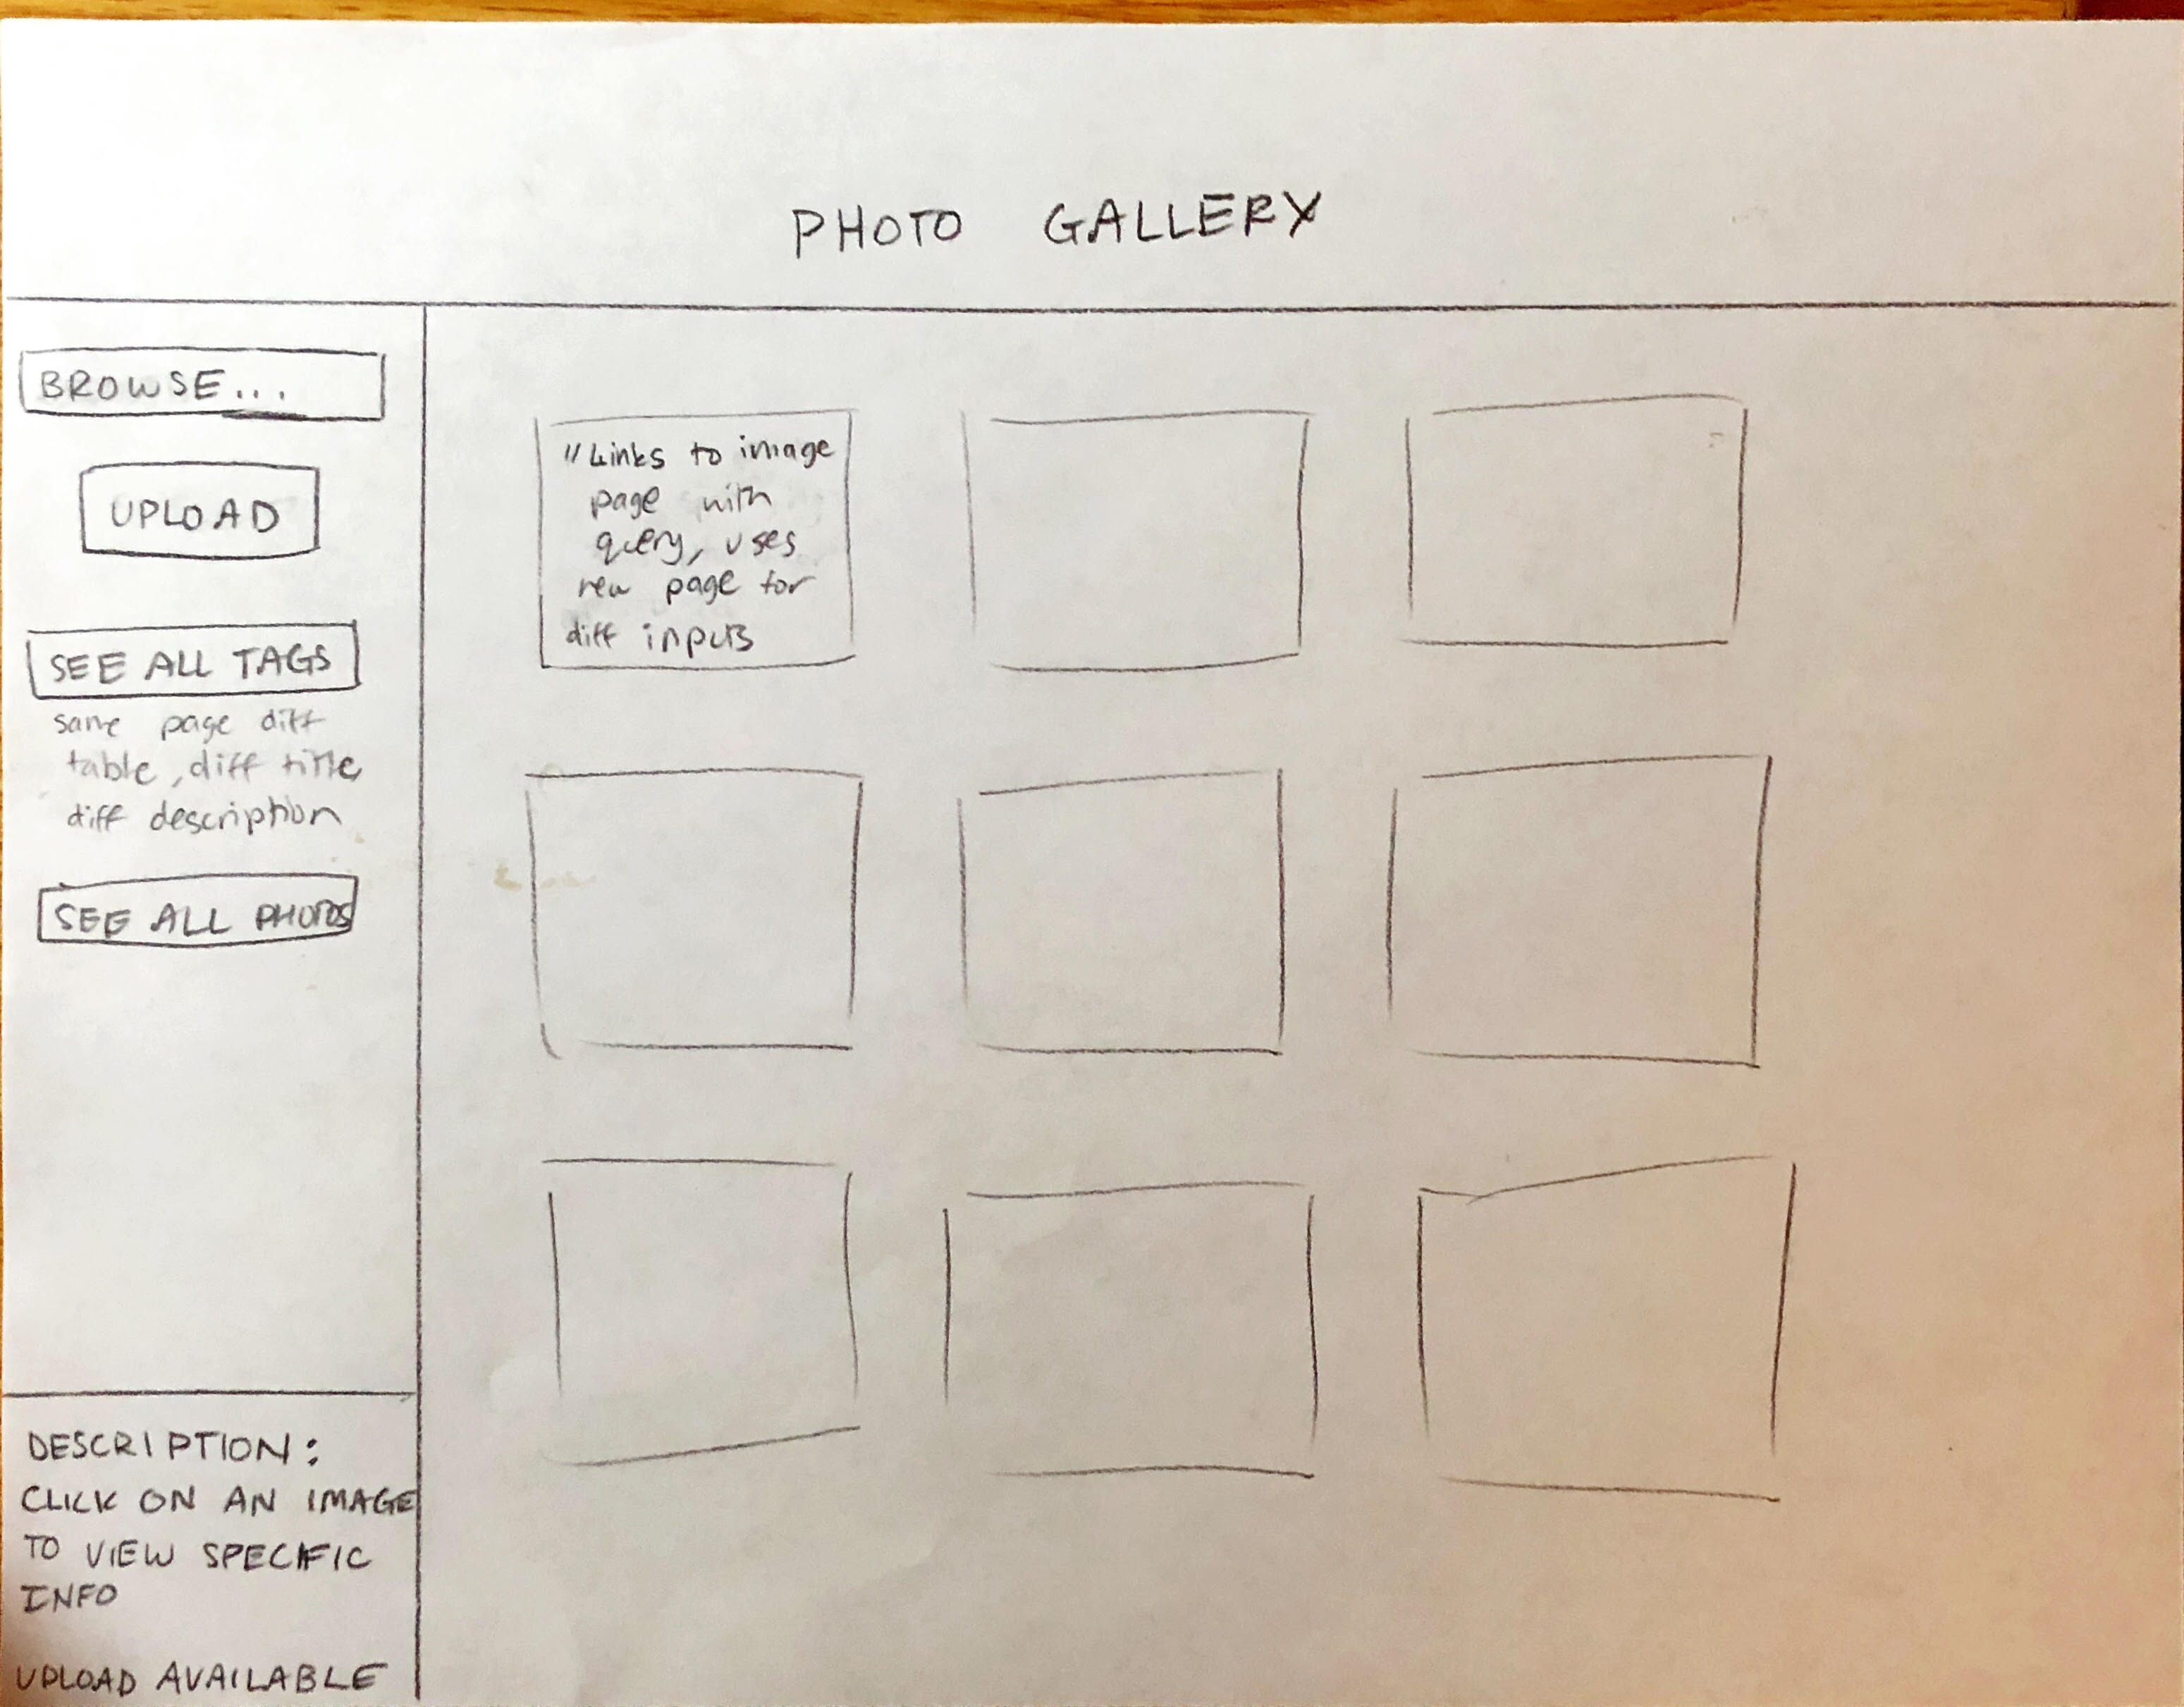 PHOTO GALLERY
BROWSE...
UPLOAD
SEE ALL TAGS
same page diff
table, diff title,
diff description
SEE ALL PHOTOS
DESCRIPTION:
CLICK ON AN IMAGE
TO VIEW SPECIFIC
INFO
UPLOAD AVAILABLE
"Links to image
page with
query, uses
new page for
diff inputs